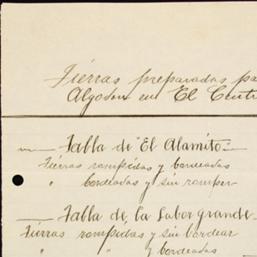 Tierras preparadas pa
Algodon en El Centr
Tabla de "El Alamito"
Tierras rompidas y bordeadas
" bordeadas y sin romper
Tabla de la Labor grande
Tierras rompidas y sin bordear
" " y bordeadas